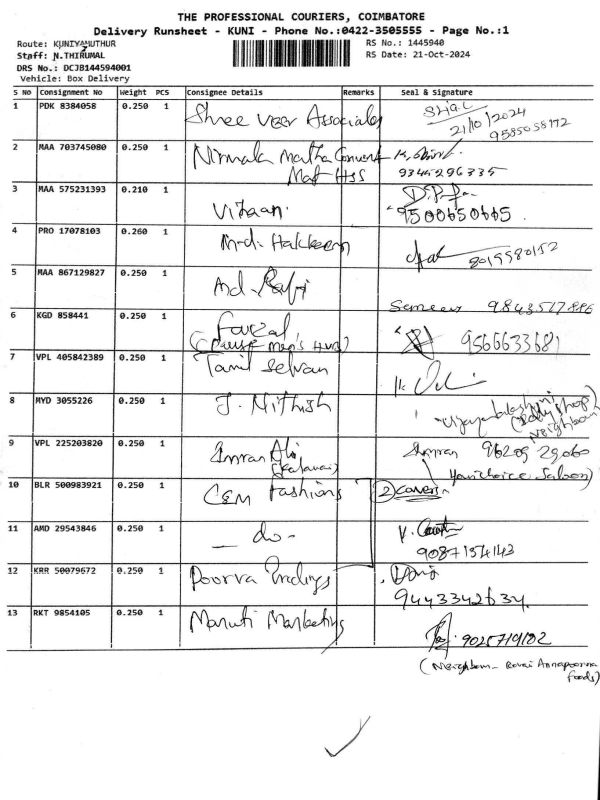 THE PROFESSIONAL COURIERS, COIMBATORE
Delivery Runsheet - KUNI - Phone No.:0422-3505555 - Page No.:1
Route: KUNIYAMUTHUR
RS No.: 1445940
Staff: N.THIRUMAL
RS Date: 21-Oct-2024
DRS No.: DCJB144594001
Vehicle: Box Delivery
S No Consignment No Weight PCS Consignee Details Remarks Seal & Signature
1 PDK 8384058 0.250 1 Shree Veer Associates
21/10/2024
9585058172
2 MAA 703745080 0.250 1 Nirmala Matha Convent
Mat Hss
9345296335
3 MAA 575231393 0.210 1 Vihaan
9500650665
4 PRO 17078103 0.260 1 Md. Hakkeem
8015580152
5 MAA 867129827 0.250 1 Md. Rafi
Sameer 9843517886
6 KGD 858441 0.250 1 Faizal
9566633681
7 VPL 405842389 0.250 1 Tamil Selvan
8 MYD 3055226 0.250 1 J. Nithish
Neighbour)
9 VPL 225203820 0.250 1 Imran Ali
Imran 96209 29060
Your choice Saloon)
10 BLR 500983921 0.250 1 C&M Fashions 2 covers
11 AMD 29543846 0.250 1 - do -
9087154143
12 KRR 50079672 0.250 1 Poorva Findings
9443342634
13 RKT 9854105 0.250 1 Maruti Marketing
9025719102
(Neighbour - Kovai Annapoorna
foods)